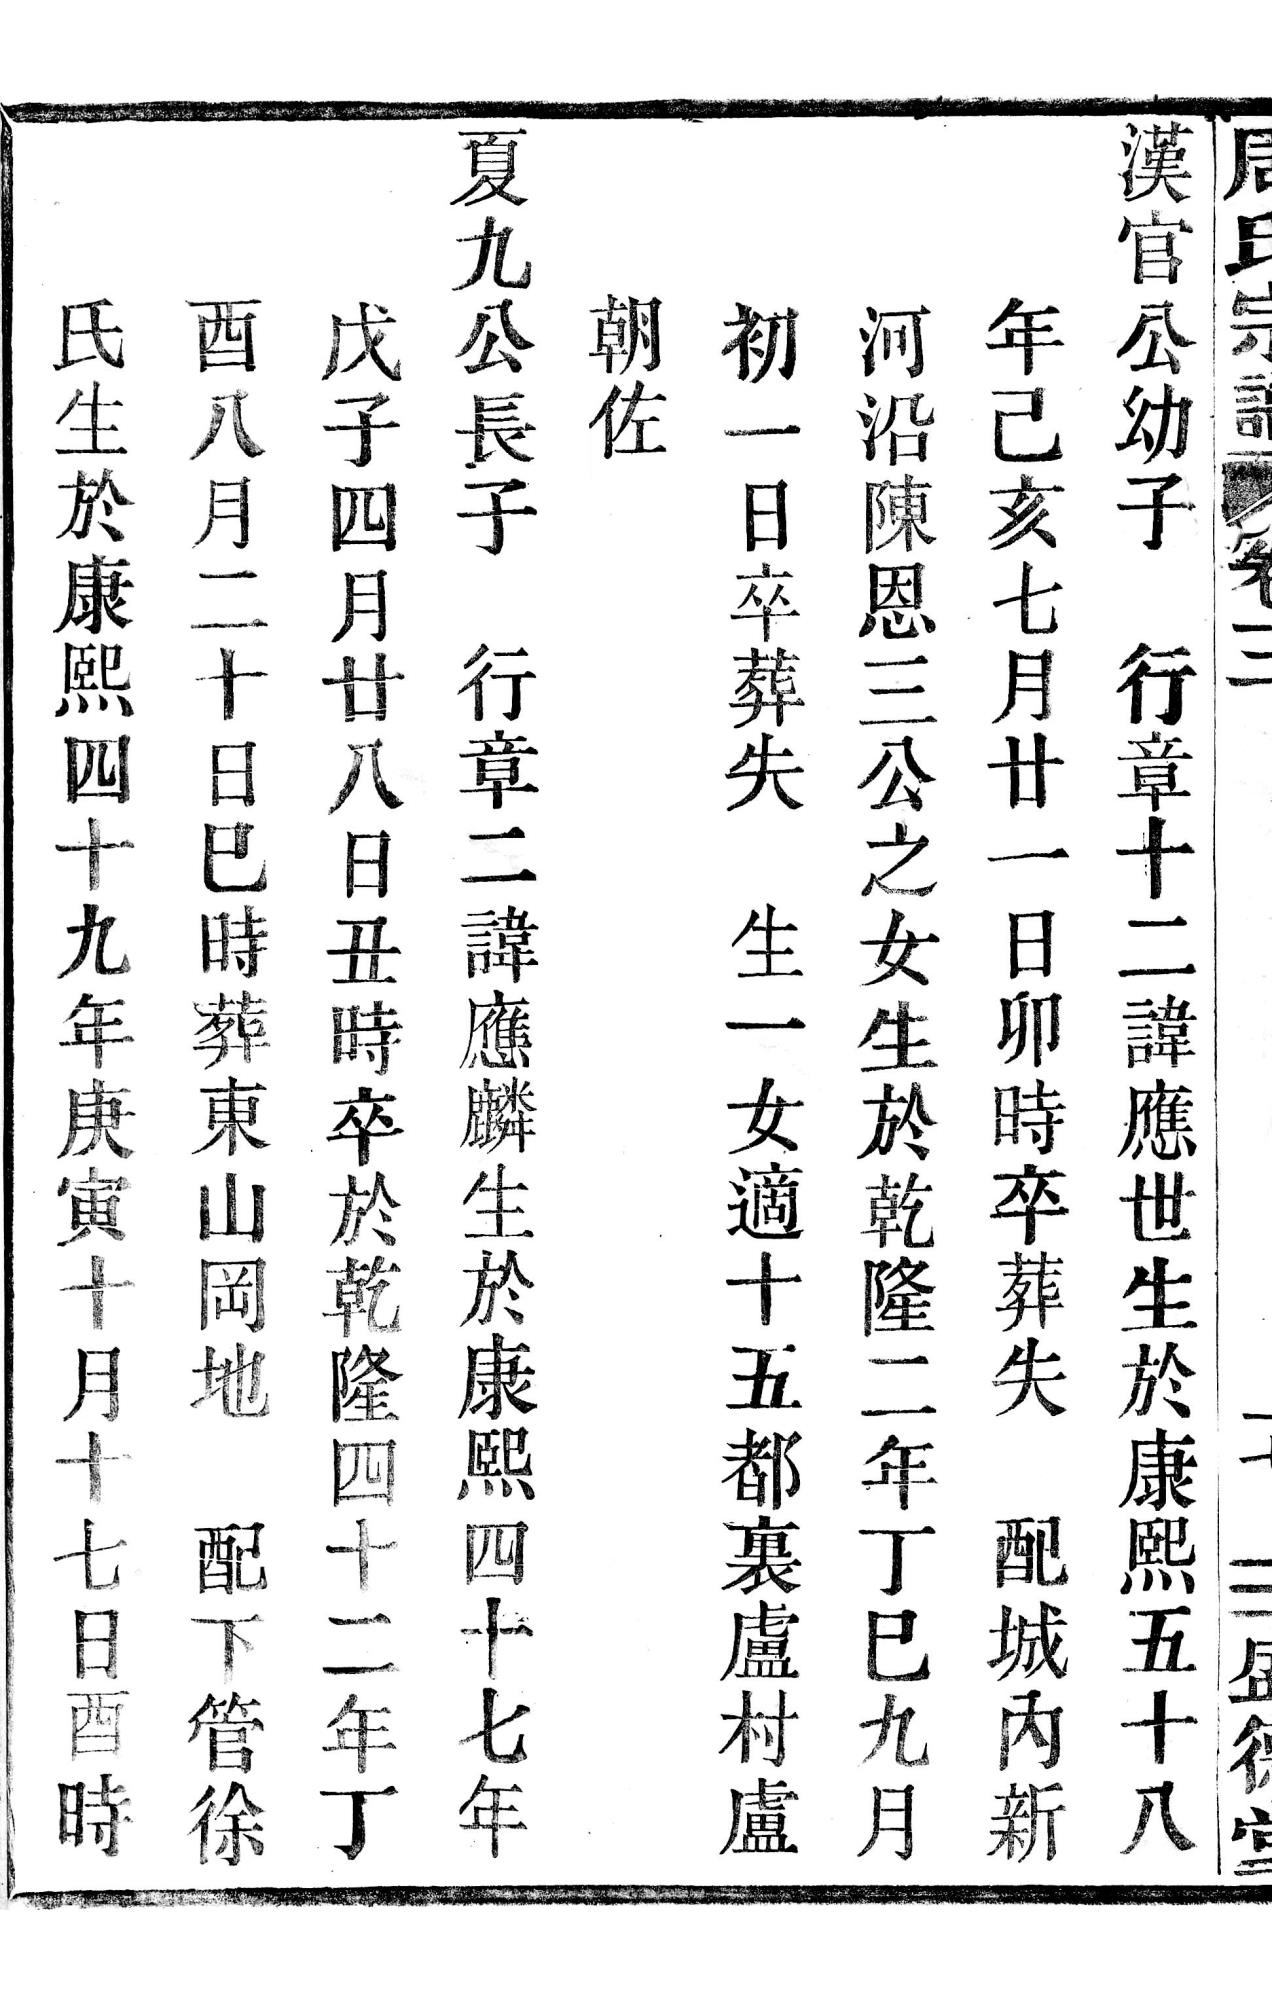 周氏宗譜 卷三 十七 三 盛德堂
漢官公幼子　行章十二諱應世生於康熙五十八
年己亥七月廿一日卯時卒葬失　配城內新
河沿陳恩三公之女生於乾隆二年丁巳九月
初一日卒葬失　生一女適十五都裏盧村盧
朝佐
夏九公長子　行章二諱應麟生於康熙四十七年
戊子四月廿八日丑時卒於乾隆四十二年丁
酉八月二十日巳時葬東山岡地　配下管徐
氏生於康熙四十九年庚寅十月十七日酉時